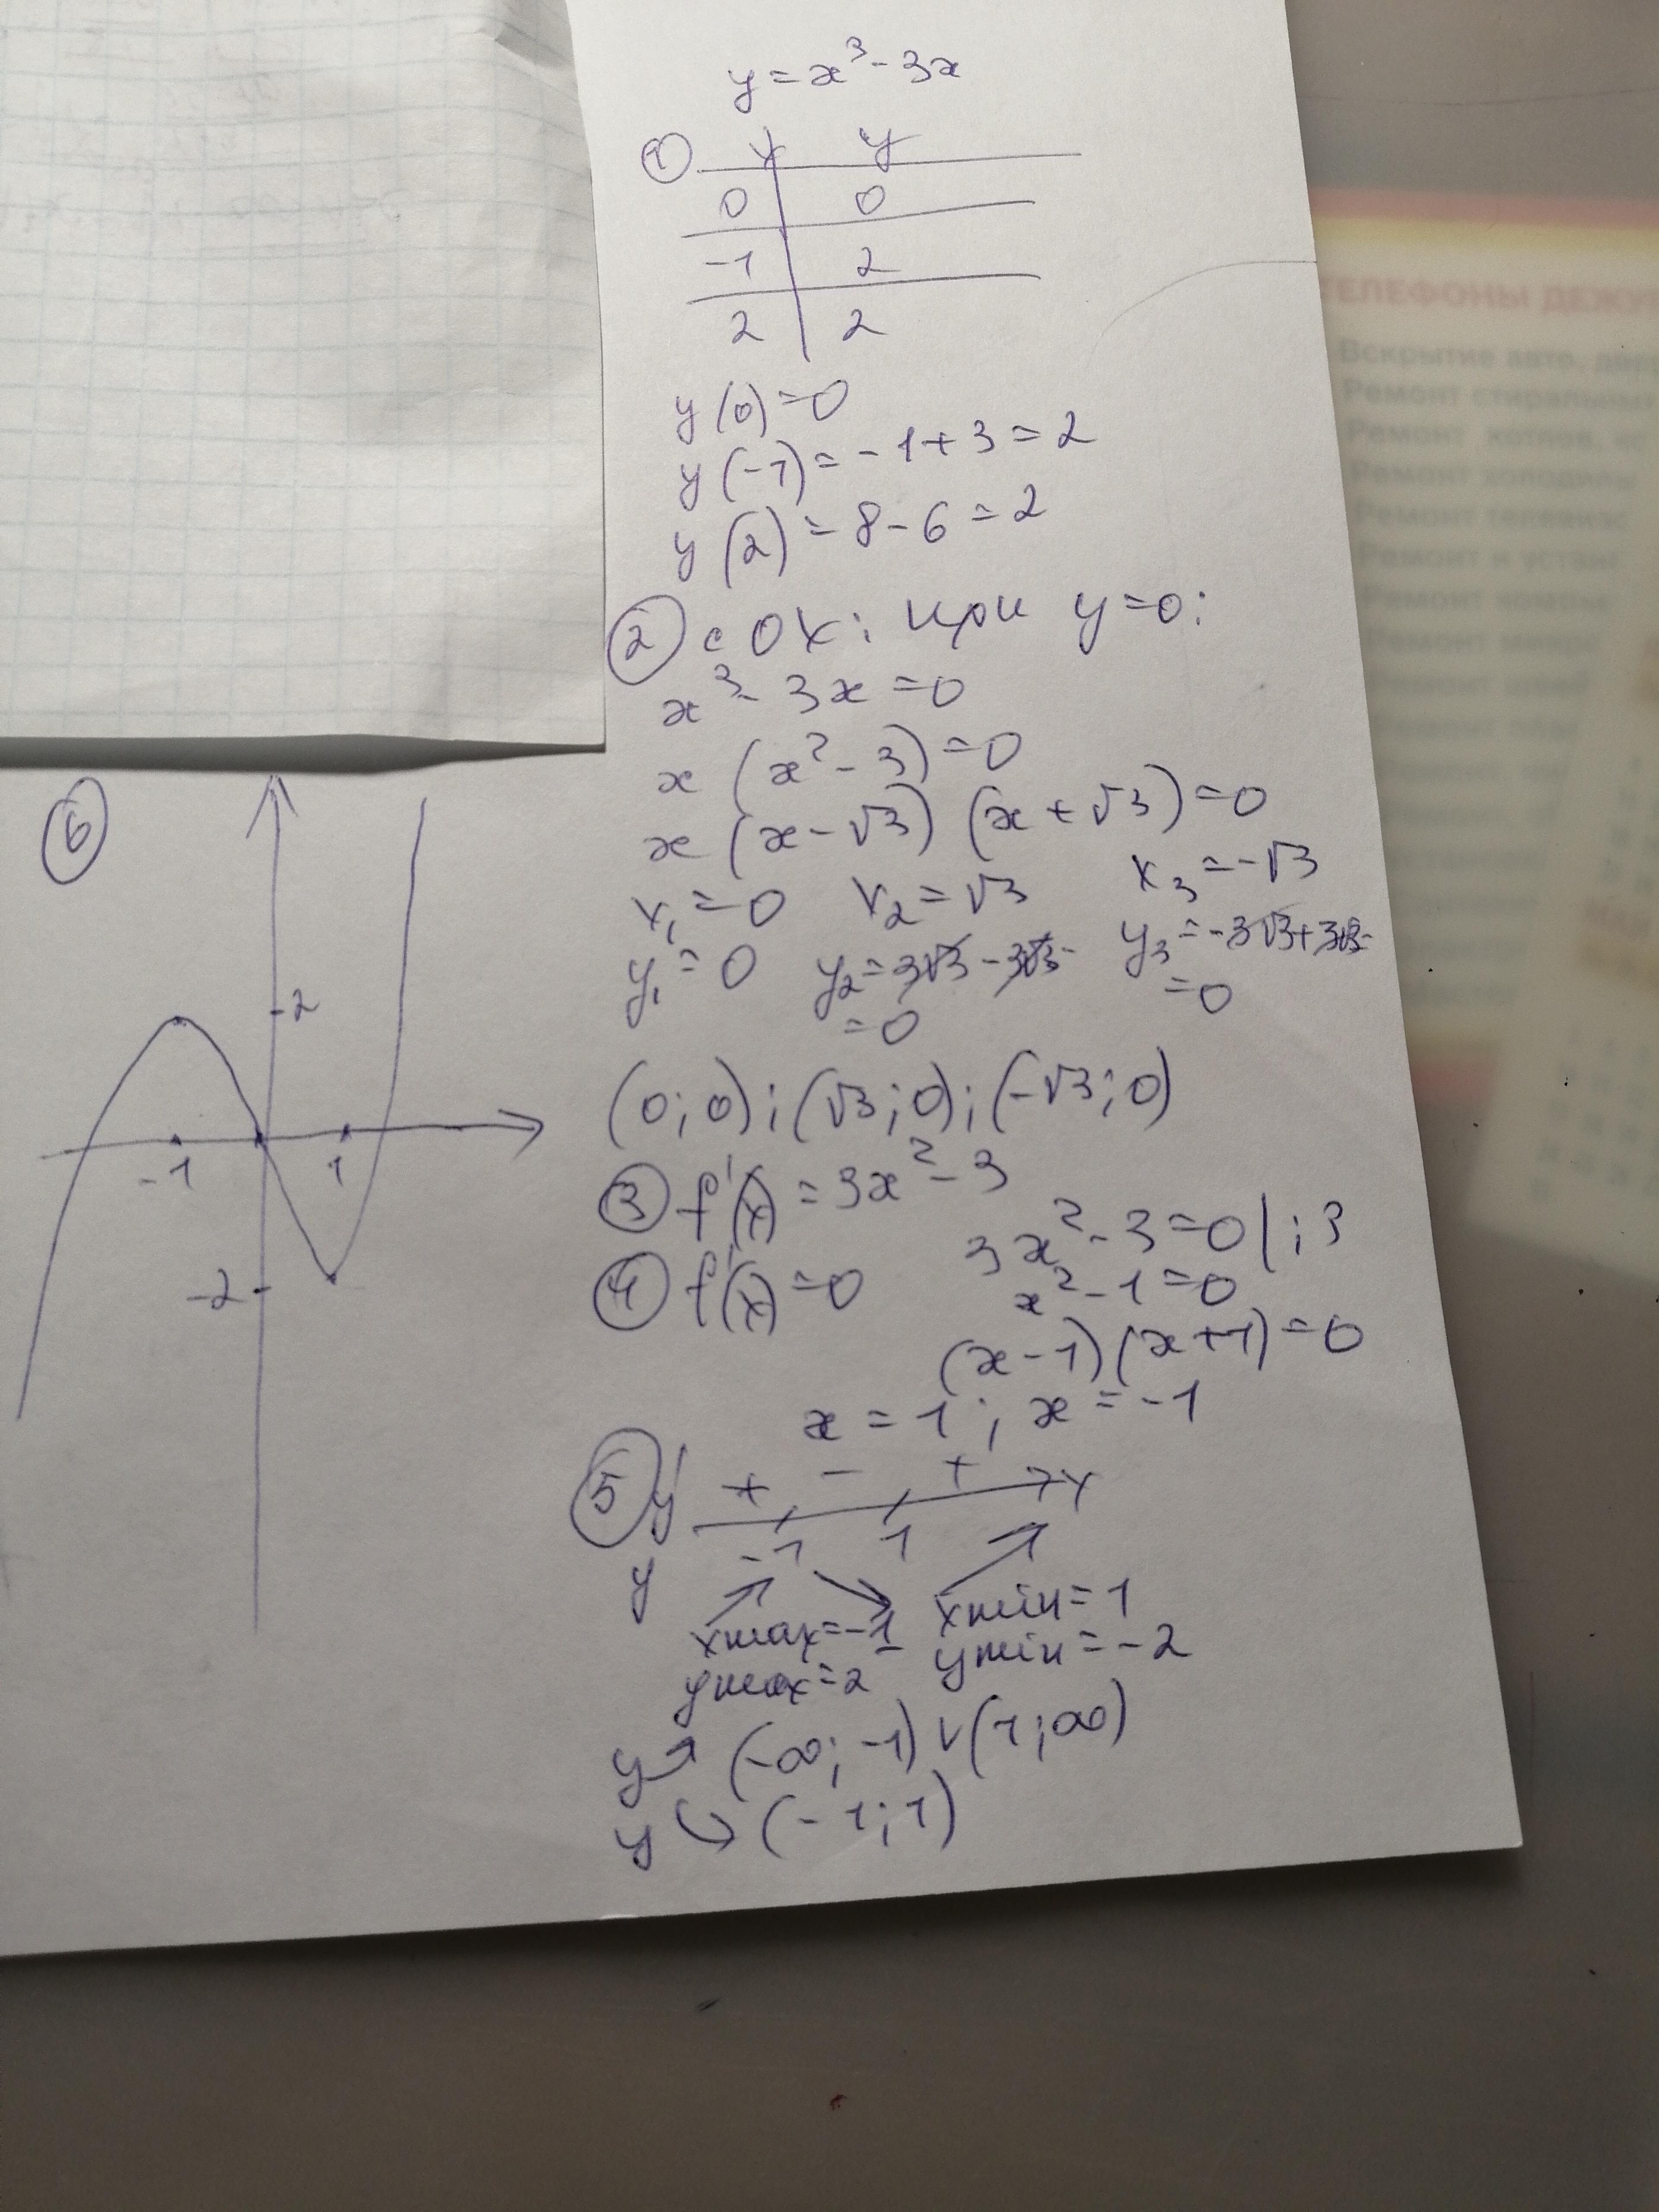 y = x³ - 3x
① x y
0 0
-1 2
2 2
y(0) = 0
y(-1) = -1+3 = 2
y(2) = 8-6 = 2
② с OX: при y=0:
x³ - 3x = 0
x(x² - 3) = 0
x(x - √3)(x + √3) = 0
x₁ = 0 x₂ = √3 x₃ = -√3
y₁ = 0 y₂ = 3√3 - 3√3 = y₃ = -3√3 + 3√3 =
= 0 = 0
(0; 0); (√3; 0); (-√3; 0)
③ f'(x) = 3x² - 3
④ f'(x) = 0 3x² - 3 = 0 | : 3
x² - 1 = 0
(x-1)(x+1) = 0
x = 1; x = -1
⑤ y' + - + x
-1 1
y
xmax = -1 xmin = 1
ymax = 2 ymin = -2
y ↗ (-∞; -1) ∨ (1; ∞)
y ↘ (-1; 1)
⑥
2
-1 1
-2
ТЕЛЕФОНЫ
Вскрытие авто,
Ремонт стиральных
Ремонт
Ремонт
Ремонт
Ремонт и
Ремонт
Ремонт